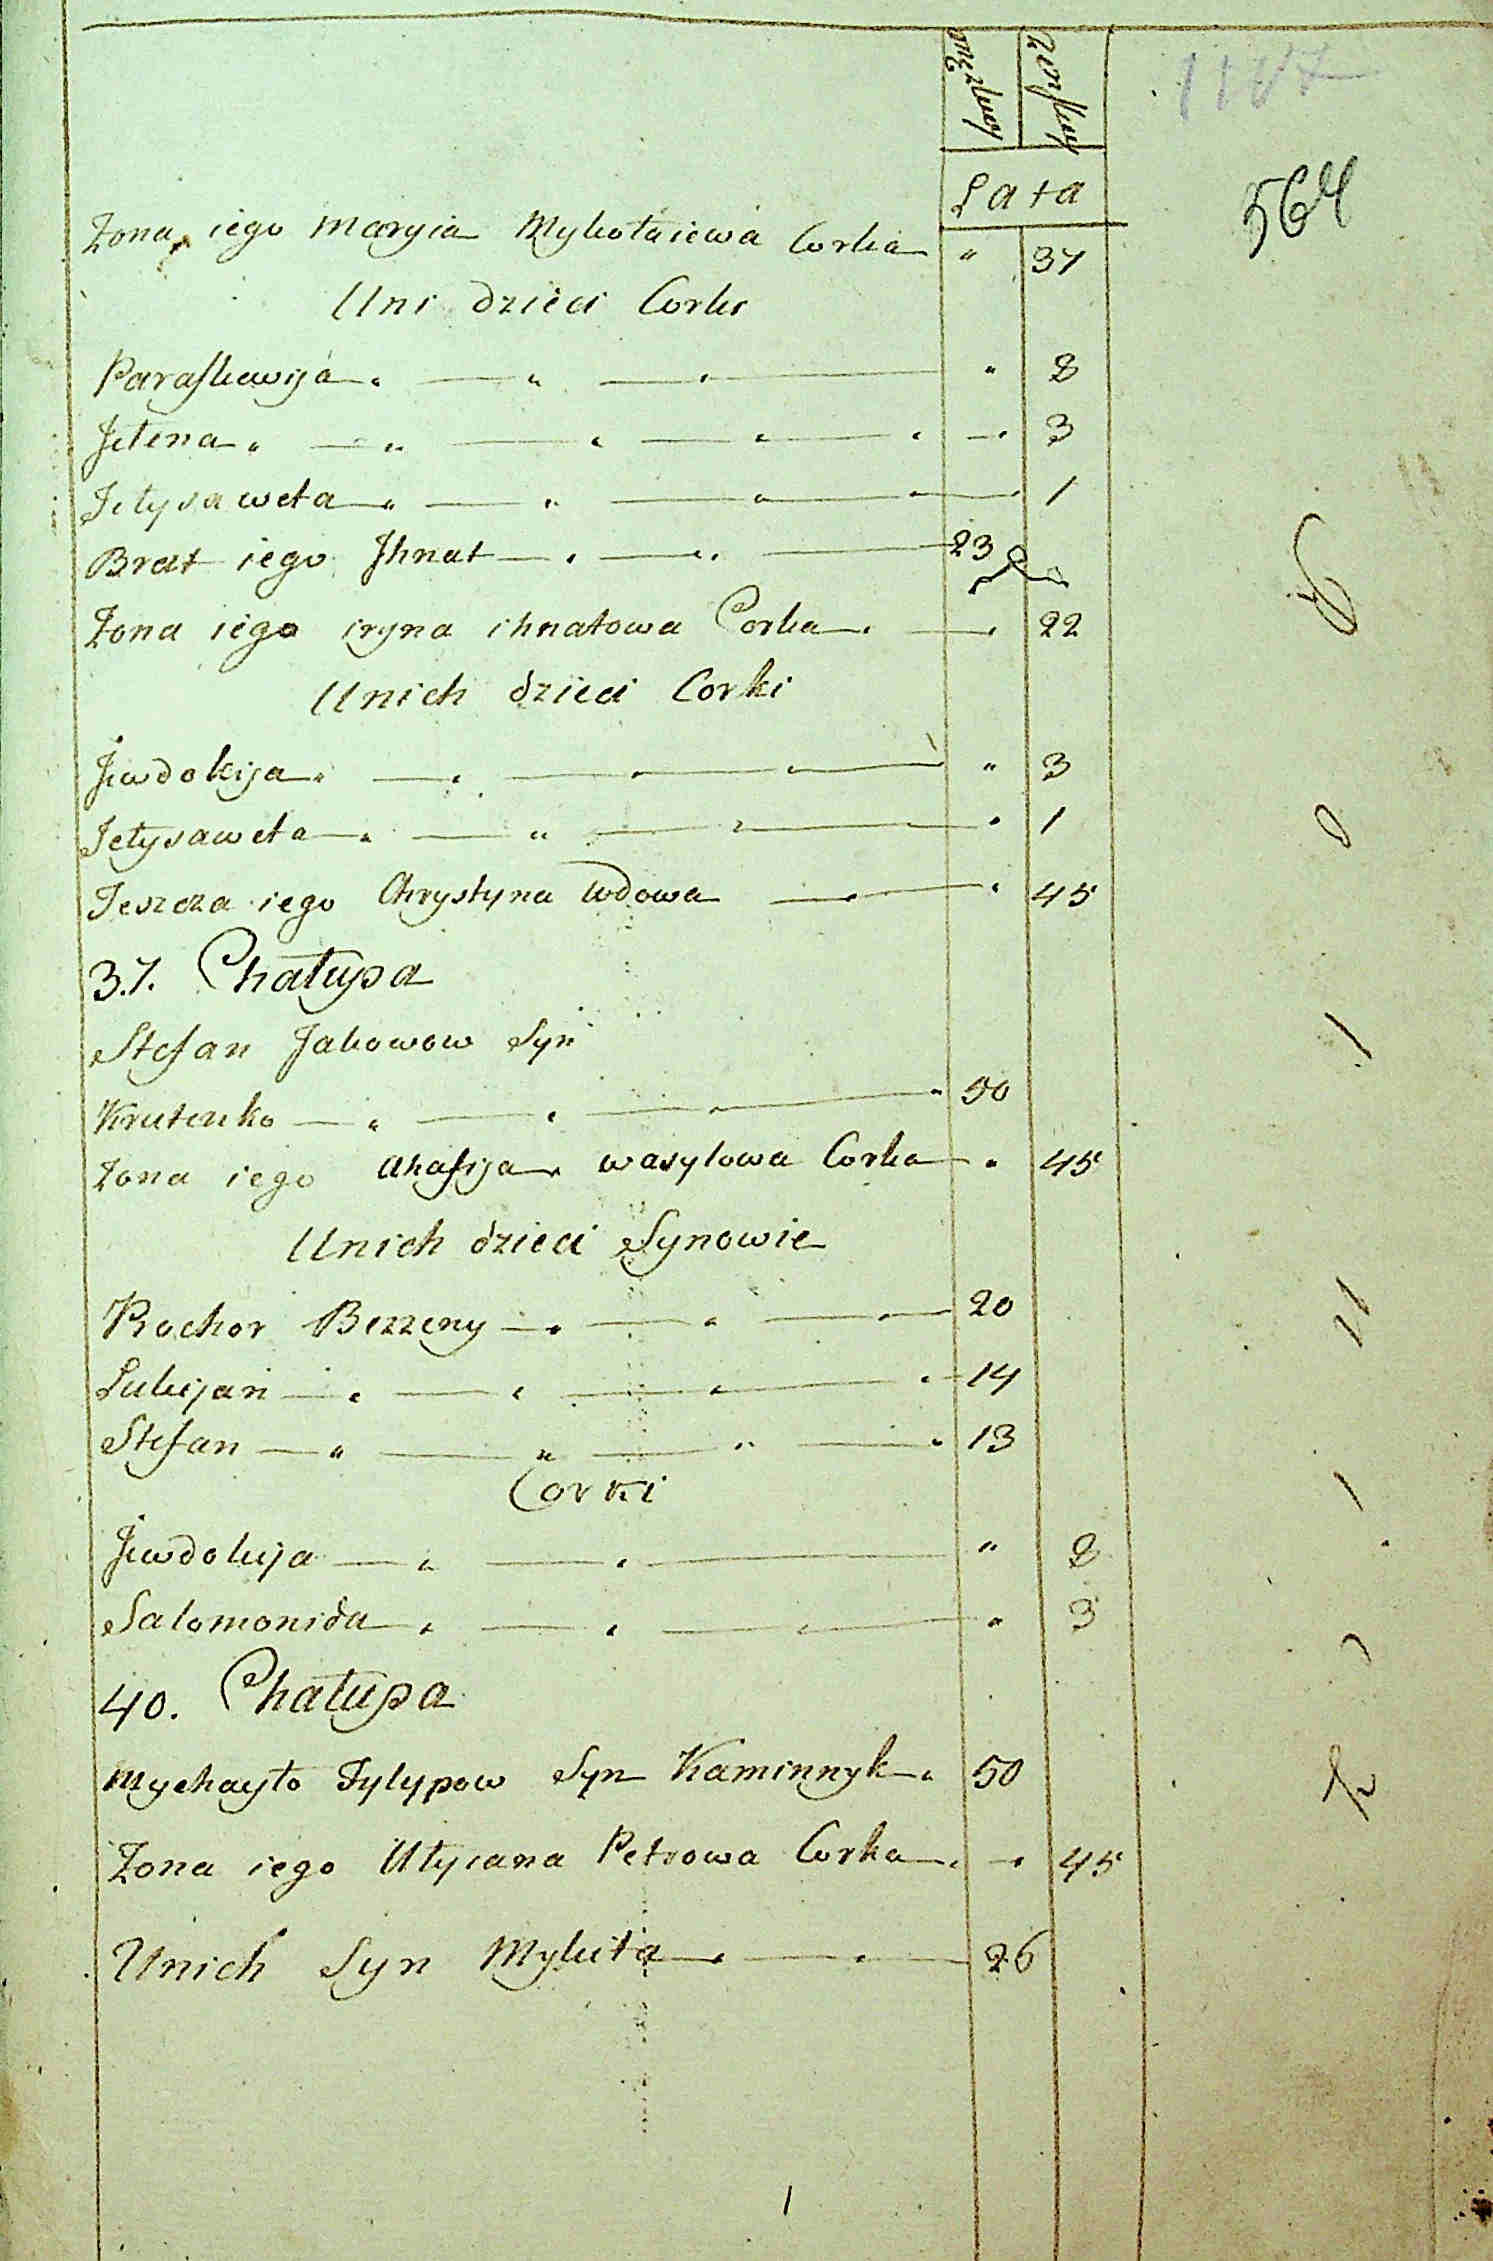 męzkiey żenskiey
1187
564
Lata
Żona iego Maryia Mykołaiewa Corka " 37
Uni dzieci Corki
Paraskewija " 8
Jełena 3
Jełysaweta 1
Brat iego Jhnat 23
Żona iego iryna ihnatowa Corka 22
Unich dzieci Corki
Jewdokija " 3
Jełysaweta " 1
Teszcza iego Chrystyna wdowa " 45
37. Chałupa
Stefan Jakowow Syn
Krutenko 50
Żona iego Ahafija wasylowa Corka " 45
Unich dzieci Synowie
Prochor Bezzeny 20
Lukijan 14
Stefan 13
Corki
Jewdokija " 8
Salomonida " 3
40. Chałupa
Mychayło Fylypow Syn Kaminnyk 50
Żona iego Ulyiana Petrowa Corka 45
Unich Syn Mykita 26